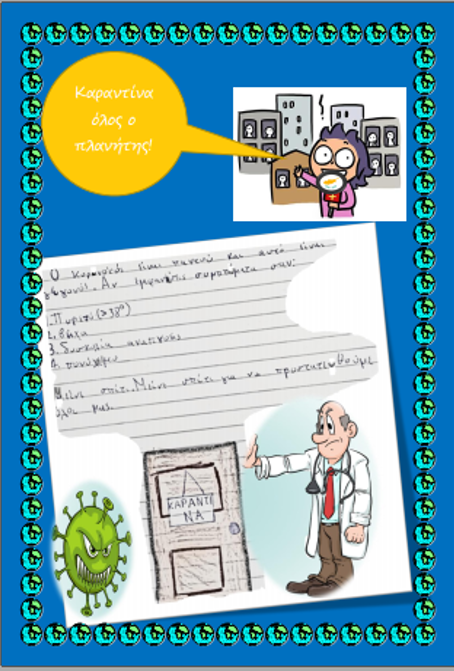 Καραντίνα
όλος ο
πλανήτης!
Ο κορωναϊός είναι παντού και αυτό είναι
γεγονός! Αν εμφανίσεις συμπτώματα σαν:
1. Πυρετό (>38°)
2. Βήχα
3. δυσκολία αναπνοής
4. πονόλαιμο
Μείνε σπίτι. Μείνε σπίτι για να προστατευθούμε
όλοι μας.
ΚΑΡΑΝΤΙ
ΝΑ